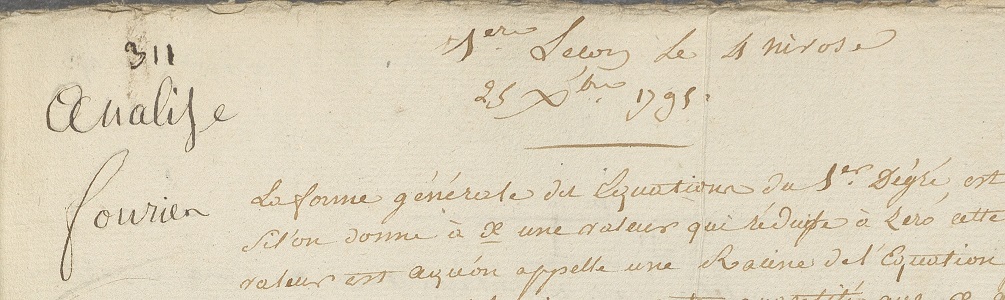 311
Analise
fourier
1ere Leçon le 4 nivose
25 Xbre 1795.
La forme générale des Equations du 1er Dégré est
Si l'on donne à x une valeur qui réduise à Zéro cette
valeur est ce qu'on appelle une Racine de l'Equation